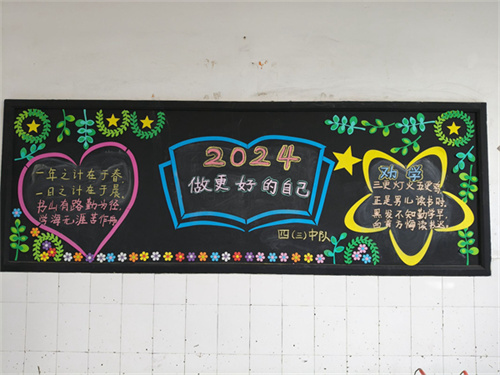 一年之计在于春
一日之计在于晨
书山有路勤为径
学海无涯苦作舟
2024
做更好的自己
四(三)中队
劝学
三更灯火五更鸡
正是男儿读书时
黑发不知勤学早
白首方悔读书迟